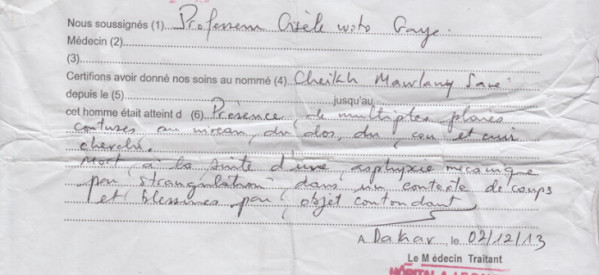 Nous soussignés (1) Professeur Gisèle Woto Gaye
Médecin (2)
(3)
Certifions avoir donné nos soins au nommé (4) Cheikh Mawlany Sané
depuis le (5) jusqu'au
cet homme était atteint d (6) Présence de multiples plaies
contuses au niveau du dos, du cou et cuir
chevelu.
Mort à la suite d'une asphyxie mécanique
par strangulation dans un contexte de coups
et blessures par objet contondant
A Dakar le 02/12/13
Le Médecin Traitant
HÔPITAL A. LE